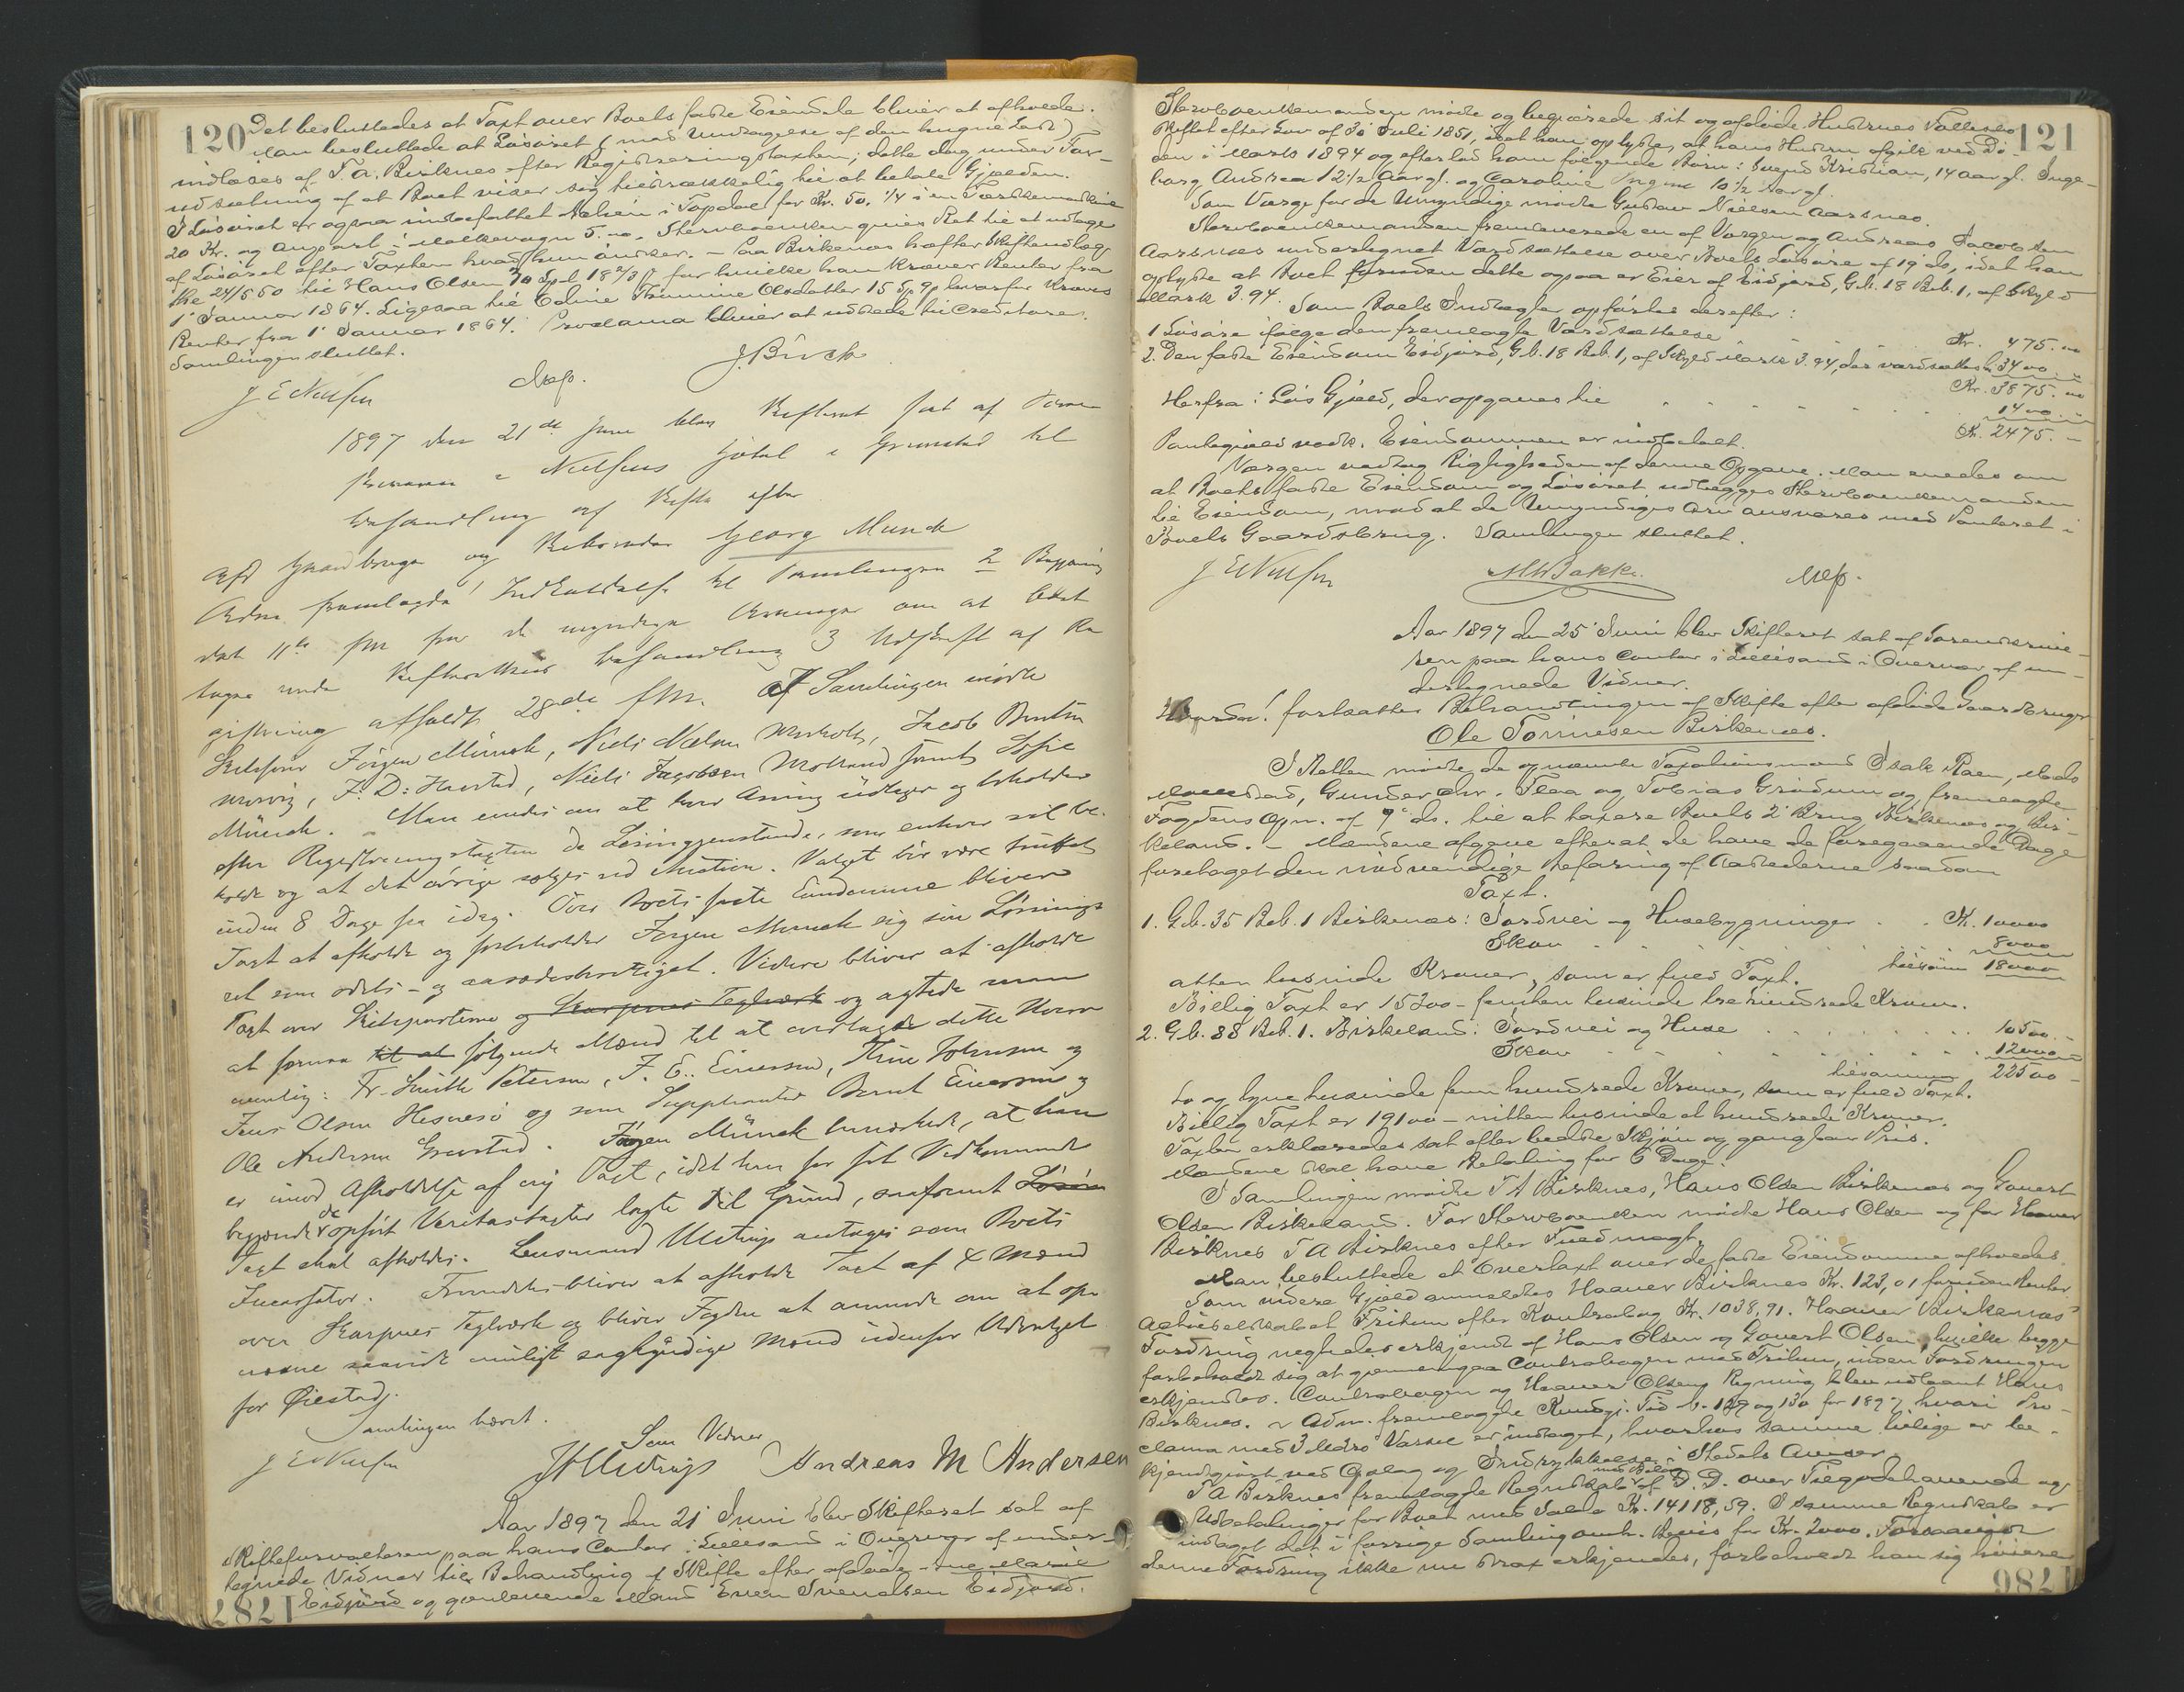 120
Det besluttedes at Taxt over Boets faste Eiendele bliver at afholde.
Man besluttede at Løsøret (med Undtagelse af den  )
indløses af T. A. Birknes efter Registreringstaxten; dette dog under For-
udsætning af at Boet viser sig tilstrækkelig til at betale Gjælden.
I Løsøret er ogsaa indbefattet Aktien i Topdal for Kr. 50. 1/4 i en Tærskemaskine
20 Kr. og Anpart i Malkevogn 5.00. Stervboenken gives Ret til at udtage
af Løsøret efter Taxten hvad hun ønsker. – Paa Birkenes hæfter Skifteudlæg
 24/5 50 til Hans Olsen 70 Spd. for hvilke han kræver Renter fra
1 Januar 1864. Ligesaa til Edine Tomine Olsdatter 15 Sp. 9 hvorfor kræves
Renter fra 1 Januar 1864. Proclama bliver at udstede til Creditorer.
Samlingen sluttet.
J E Nielsen   J. Birch
1897 den 21de Juni blev Skifteret sat af
 i Nielsens Hotel i Grimstad til
Behandling af Skifte efter
Afd Gaardbruger og Skibsreder Georg Munch
Adm fremlagde 1 Indkaldelse til Samlingen 2 Begjæring
dat 11te  fra de myndige Arvinger om at Boet
tages under Skifterettens Behandling 3 Udskrift af Re
gistrering afholdt 28de f.M. Af Samlingen mødte
Skibsfører Jørgen Münch, Niels Nielsen , Jacob 
, F. D: , Niels Jacobsen Molland samt Sofie
Münch. Man enedes om at hver Arving udtager og beholder
efter Registreringstaxten de Løsøregjenstande, som enhver vil be-
holde og at det øvrige sælges ved Auktion. Valget bør være truffet
inden 8 Dage fra idag. Over Boets faste Eiendomme bliver
Taxt at afholde og forbeholder Jørgen Munch sig sin Løsnings
ret som odels- og aasædesberettiget. Videre bliver at afholde
Taxt over Skibsparterne og Skarpnes Teglværk og agtede man
at formaa til at følgende Mænd til at overtage dette Hverv
nemlig: Fr. Smith Petersen, J. E. Evensen, Thine Johnsen og
Jens Olsen Hesnesø og som Supplianter Bernt Evensen og
Ole Andersen Grimstad. Jørgen Münch bemærkede, at han
er imod Afholdelse af ny Taxt, idet han for sit Vedkommende
begjærede de opført Veritastaxter lagte til Grund, saafremt Løsøre
Taxt skal afholdes. Lensmand Ulstrup antages som Boets
Incassator. Fremdeles bliver at afholde Taxt af 4 Mænd
over Skarpnes Teglværk og bliver Fogden at anmode om at op
nævne saavidt muligt sagkyndige Mænd udenfor Udvalget
for Øiestad.
Samlingen hævet.
Som Vidner
J E Nielsen   Andreas M Andersen
Aar 1897 den 21 Juni blev Skifteret sat af
Skifteforvalteren paa hans Contor i Lillesand i Overvær af under-
tegnede Vidner til Behandling af Skifte efter afdøde  Marie
Eidjord og gjenlevende Mand Even Svendsen Eidjord.
1787
121
Stervboenkemanden mødte og begjærede sit og afdøde Hustrues Fællesbo
skiftet efter Lov af 30 Juli 1851, idet han oplyste, at hans Hustru afgik ved Dø-
den i Marts 1894 og efterlod ham følgende Børn: Svend Kristian, 14 Aar gl. Inge-
borg Andrea 12 1/2 Aar gl. og Caroline  10 1/2 Aar gl.
Som Værge for de Umyndige mødte Gustav Nielsen Aarsnes.
Stervboenkemanden fremleverede en af Værgen og Andreas Jacobsen
Aarsnes undertegnet Værdsættelse over Boets Løsøre af 19 ds, idet han
oplyste at Boet foruden dette ogsaa er Eier af Eidjord, G.b. 18 B.b. 1, af Skyld
Mark 3.94. Som Boets Indtægter opførtes derefter:
1 Løsøre ifølge den fremlagte Værdsættelse Kr. 475.00
2. Den faste Eiendom Eidjord, G.b. 18 B.b. 1, af Skyld Mark 3.94, der værdsættes til 3400.
Kr. 3875.00
Herfra: Løs Gjæld, der opgaves til 1400.
Kr. 2475.
Pantegjæld vedk. Eiendommen er indbetalt.
Værgen vedtog Rigtigheden af denne Opgave. Man enedes om
at Boets faste Eiendom og Løsøret udlægges Stervboenkemanden
til Eiendom, mod at de Umyndiges Arv ansvares med Panteret i
Boets Gaardsbrug. Samlingen sluttet.
J E Nielsen   M W Bakke.
Aar 1897 den 25 Juni blev Skifteret sat af Sorenskrive-
ren paa hans Contor i Lillesand i Overvær af un-
dertegnede Vidner.
Hvorda! fortsattes Behandlingen af Skifte efter afdøde Gaardbruger
Ole Tønnesen Birkenes.
I Retten mødte de opnævnte Taxationsmænd Isak Raen, Mads
Mollestad, Gunder Chr. Flaa og Tobias Grødum og fremlagde
Fogdens Opn. af 9 ds. til at taxere Boets 2 Brug Birkenes og Bir-
keland. – Mændene afgave efter at de have de foregaaende Dage
foretaget den nødvendige Befaring af Aastederne saadan
Taxt.
1. G.b. 35 B.b. 1 Birkenes: Jordvei og Husebygninger Kr. 10000
Skov 8000
tilsam 18000
atten tusinde Kroner, som er fuld Taxt.
Billig Taxt er 15300 – femten tusinde tre hundrede Kroner.
2. G.b. 88 B.b. 1. Birkeland: Jordvei og Huse 10500.
Skov 12000
tilsammen 22500
to og tyve tusinde fem hundrede Kroner, som er fuld Taxt.
Billig Taxt er 19100 – nitten tusinde et hundrede Kroner.
Taxten erklæredes sat efter bedste Skjøn og gangbar Pris.
Mændene skal have Betaling for 6 Dage.
I Samlingen mødte T A Birknes, Hans Olsen Birkenes og Govert
Olsen Birkeland. For Stervboenken møde Hans Olsen og for Haaver
Birknes T A Birknes efter Fuldmagt.
Man besluttede at Overtaxt over de faste Eiendomme afholdes.
Som videre Gjæld anmeldtes Haaver Birknes Kr. 123,01 foruden Renter.
Actieselskabet Tritum efter Kontrabog Kr. 1038,91. Haaver Birkenes'
Fordring negtedes erkjendt af Hans Olsen og Govert Olsen, hvilke begge
forbeholdt sig at gjennemgaa Contrabogen med Tritum, inden Fordringen
erkjendtes. Contrabogen og Haaver Olsens Regning blev udlaant Hans
Birknes. – Adm. fremlagde Kundgj. Tid. No. 129 og 130 for 1897 hvori Pro-
clama med 3 Mdrs Varsel er indtaget, hvorhos samme tillige er be-
kjendtgjort ved Opslag og Indrykkelse i Stedets Aviser.
T A Birknes fremlagde Regnskab med Bilag af D. D. over Tilgodehavende og
Udbetalinger for Boet med Saldo Kr. 14118,59. I samme Regnskab er
indtaget det i forrige Samling omh. Bevis for Kr. 2000. Forsaavidt
denne Fordring ikke nu strax erkjendes, forbeholdt han sig høiere
1786